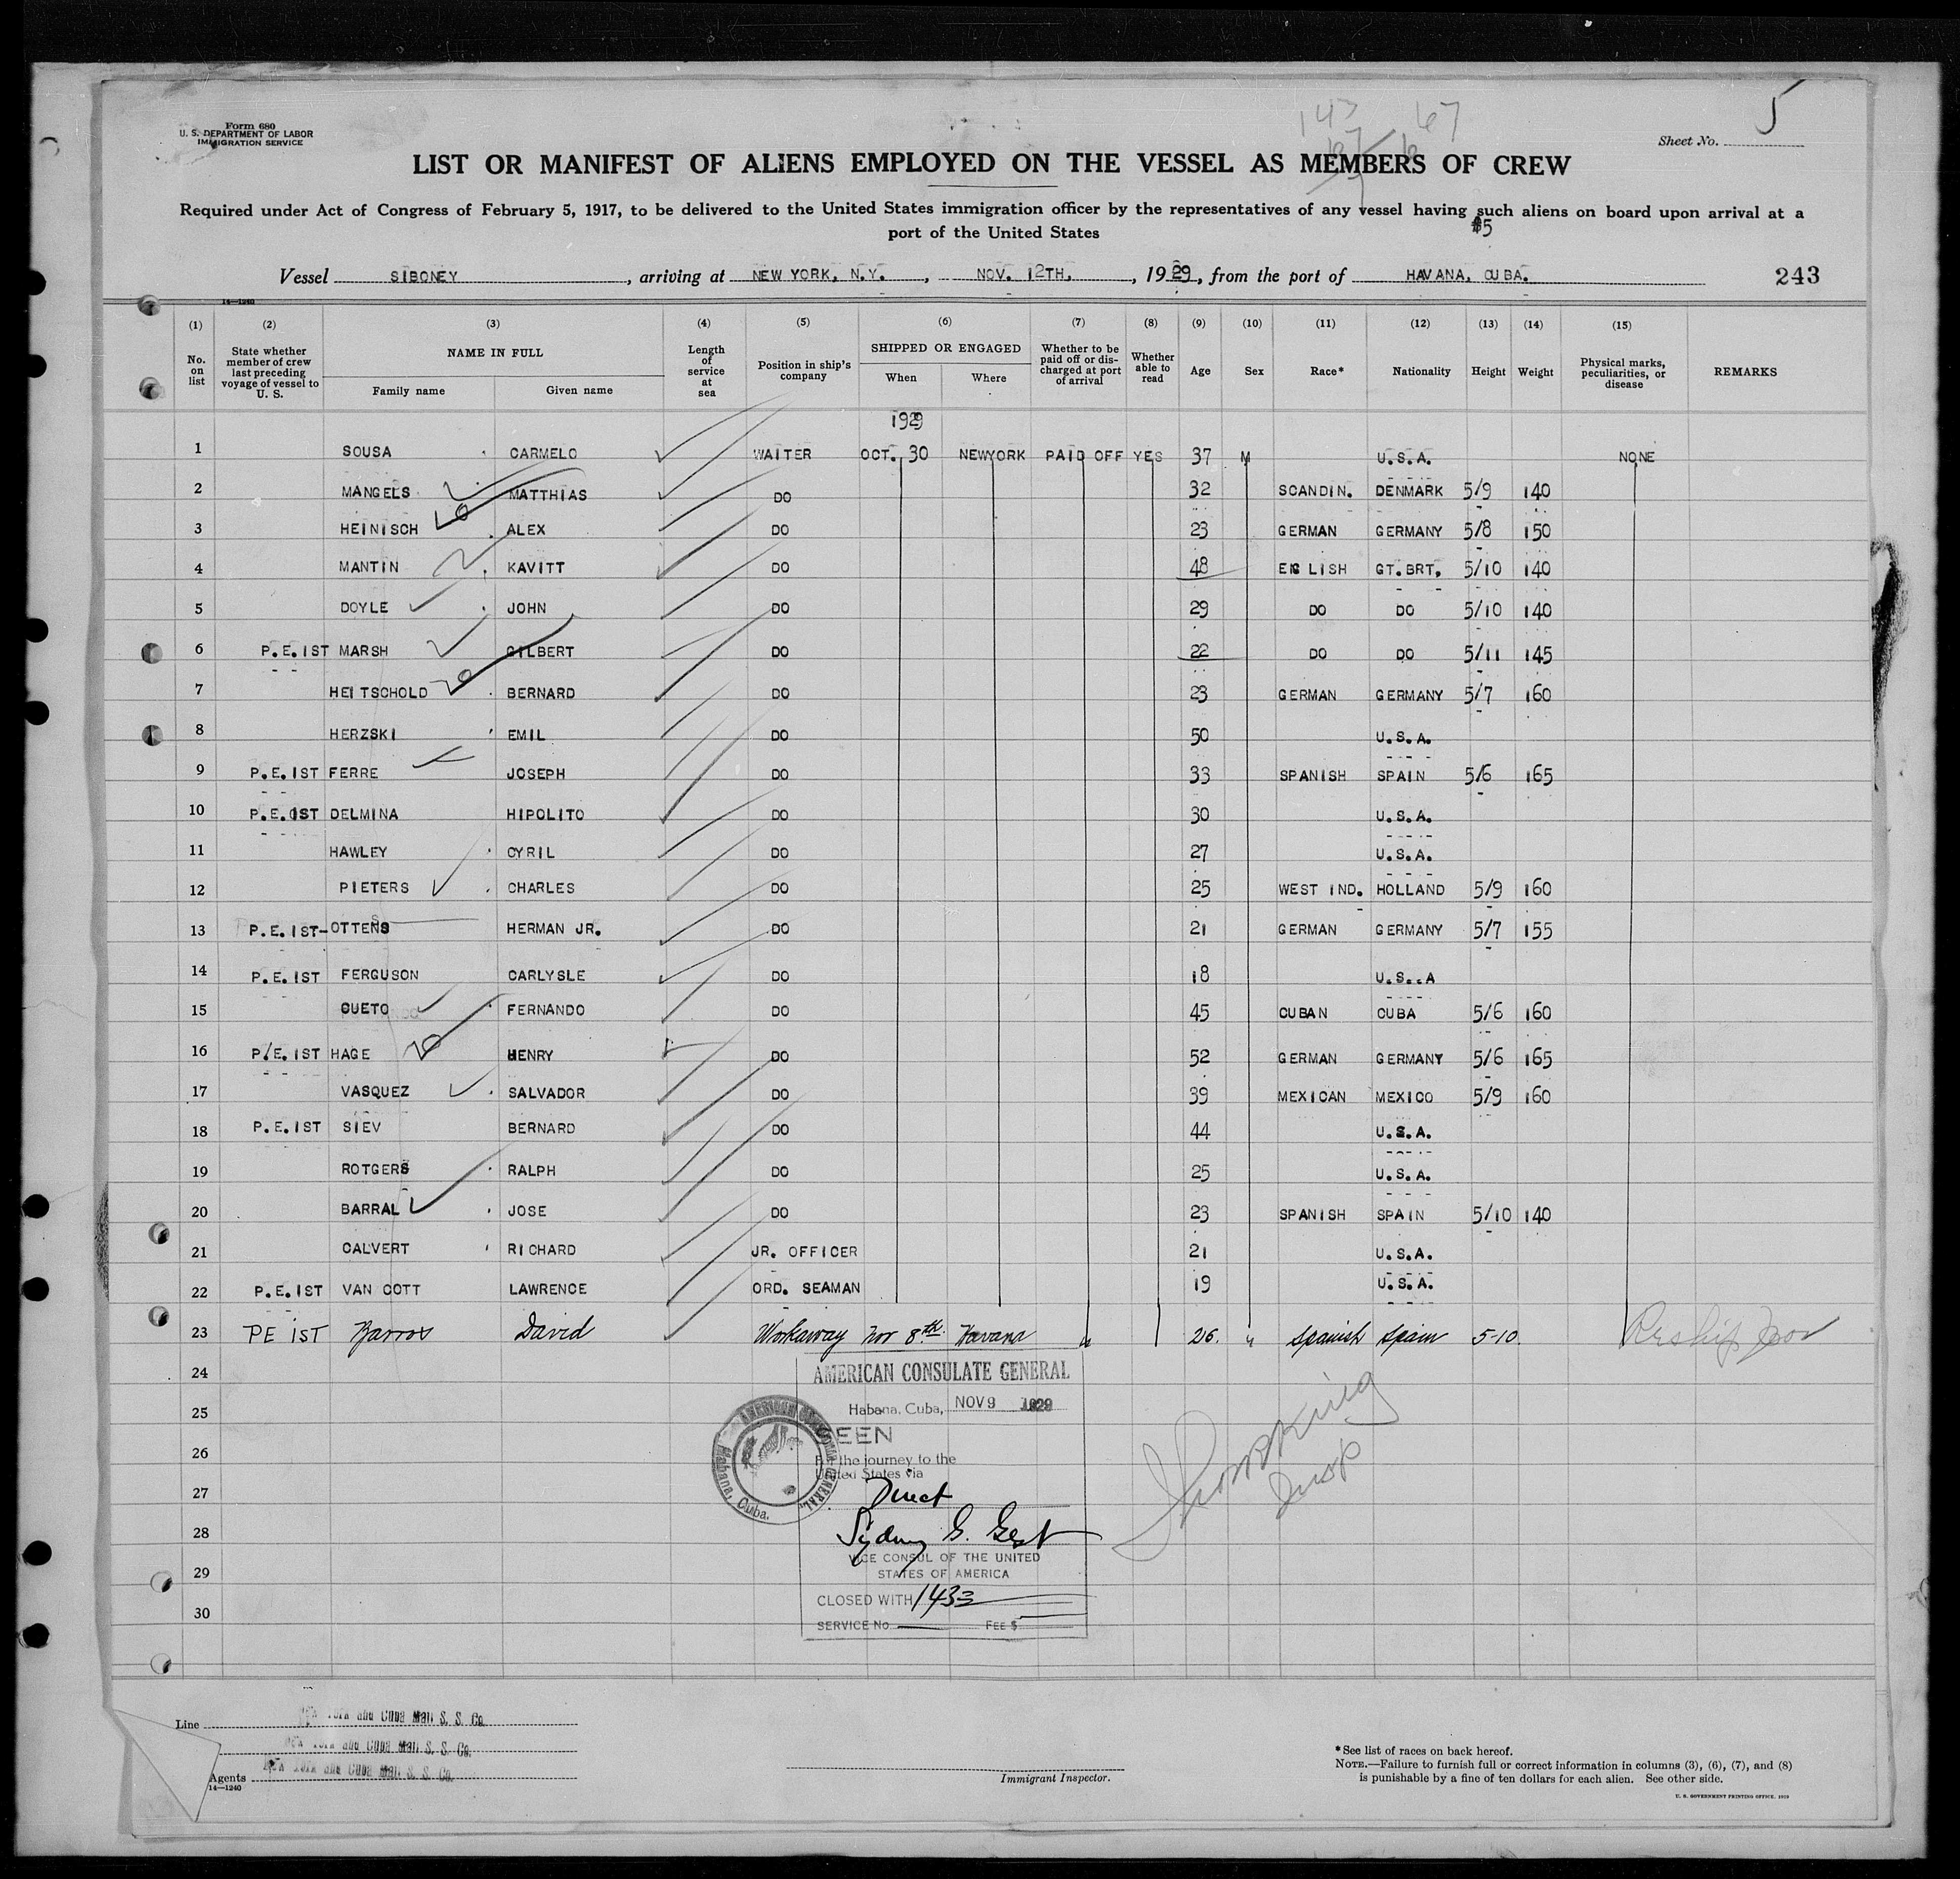 Form 680
U. S. DEPARTMENT OF LABOR
IMMIGRATION SERVICE
143
67
Sheet No. 5
LIST OR MANIFEST OF ALIENS EMPLOYED ON THE VESSEL AS MEMBERS OF CREW
Required under Act of Congress of February 5, 1917, to be delivered to the United States immigration officer by the representatives of any vessel having such aliens on board upon arrival at a
port of the United States
#5
Vessel SIBONEY, arriving at NEW YORK, N.Y., NOV. 12TH, 1929, from the port of HAVANA, CUBA. 243
14—1240
(1) (2) (3) (4) (5) (6) (7) (8) (9) (10) (11) (12) (13) (14) (15)
No. on list State whether member of crew last preceding voyage of vessel to U. S. NAME IN FULL Family name Given name Length of service at sea Position in ship's company SHIPPED OR ENGAGED When Where Whether to be paid off or discharged at port of arrival Whether able to read Age Sex Race* Nationality Height Weight Physical marks, peculiarities, or disease REMARKS
1929
1 SOUSA CARMELO WAITER OCT. 30 NEWYORK PAID OFF YES 37 M U.S.A. NONE
2 MANGELS MATTHIAS DO 32 SCANDIN. DENMARK 5/9 140
3 HEINISCH ALEX DO 23 GERMAN GERMANY 5/8 150
4 MANTIN KAVITT DO 48 ENGLISH GT.BRT. 5/10 140
5 DOYLE JOHN DO 29 DO DO 5/10 140
6 P.E.IST MARSH GILBERT DO 22 DO DO 5/11 145
7 HEITSCHOLD BERNARD DO 23 GERMAN GERMANY 5/7 160
8 HERZSKI EMIL DO 50 U.S.A.
9 P.E.IST FERRE JOSEPH DO 33 SPANISH SPAIN 5/6 165
10 P.E.IST DELMINA HIPOLITO DO 30 U.S.A.
11 HAWLEY CYRIL DO 27 U.S.A.
12 PIETERS CHARLES DO 25 WEST IND. HOLLAND 5/9 160
13 P.E.IST-OTTENS HERMAN JR. DO 21 GERMAN GERMANY 5/7 155
14 P.E.IST FERGUSON CARLYSLE DO 18 U.S..A
15 CUETO FERNANDO DO 45 CUBAN CUBA 5/6 160
16 P/E.IST HAGE HENRY DO 52 GERMAN GERMANY 5/6 165
17 VASQUEZ SALVADOR DO 39 MEXICAN MEXICO 5/9 160
18 P.E.IST SIEV BERNARD DO 44 U.S.A.
19 ROTGERS RALPH DO 25 U.S.A.
20 BARRAL JOSE DO 23 SPANISH SPAIN 5/10 140
21 CALVERT RICHARD JR. OFFICER 21 U.S.A.
22 P.E.IST VAN COTT LAWRENCE ORD. SEAMAN 19 U.S.A.
23 PE IST Barros David Workaway Nov 8th Havana " 26. " Spanish Spain 5-10. Reship
24
25
26
27
28
29
30
AMERICAN CONSULATE GENERAL
Habana, Cuba, NOV 9 1929
SEEN
For the journey to the
United States via
Direct
Sydney G. Gest
VICE CONSUL OF THE UNITED
STATES OF AMERICA
CLOSED WITH 1433
SERVICE No. FEE $
AMERICAN CONSULATE GENERAL, Habana, Cuba.
Insp
Line New York and Cuba Mail S. S. Co.
New York and Cuba Mail S. S. Co.
Agents New York and Cuba Mail S. S. Co.
14—1240
Immigrant Inspector.
*See list of races on back hereof.
NOTE.—Failure to furnish full or correct information in columns (3), (6), (7), and (8)
is punishable by a fine of ten dollars for each alien. See other side.
U. S. GOVERNMENT PRINTING OFFICE. 1929